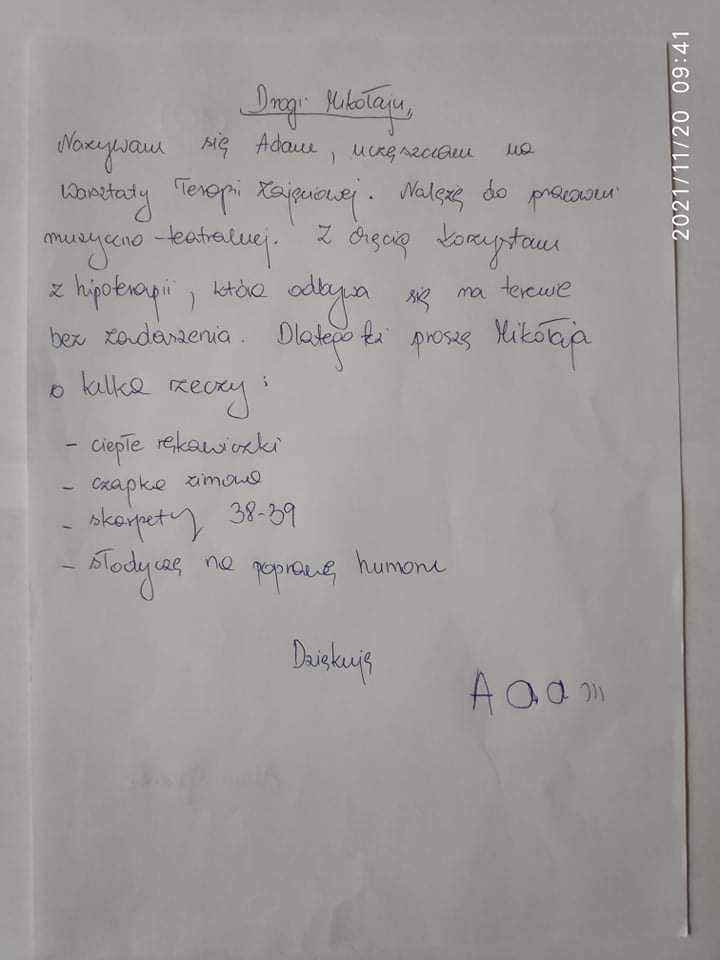 Drogi Mikołaju,
Nazywam się Adam, uczęszczam na
Warsztaty Terapii Zajęciowej. Należę do pracowni
muzyczno-teatralnej. Z chęcią korzystam
z hipoterapii, która odbywa się na terenie
bez zadaszenia. Dlatego też proszę Mikołaja
o kilka rzeczy:
- ciepłe rękawiczki
- czapka zimowa
- skarpety 38-39
- słodyczę na poprawę humoru
Dziękuję
Adam
2021/11/20 09:41